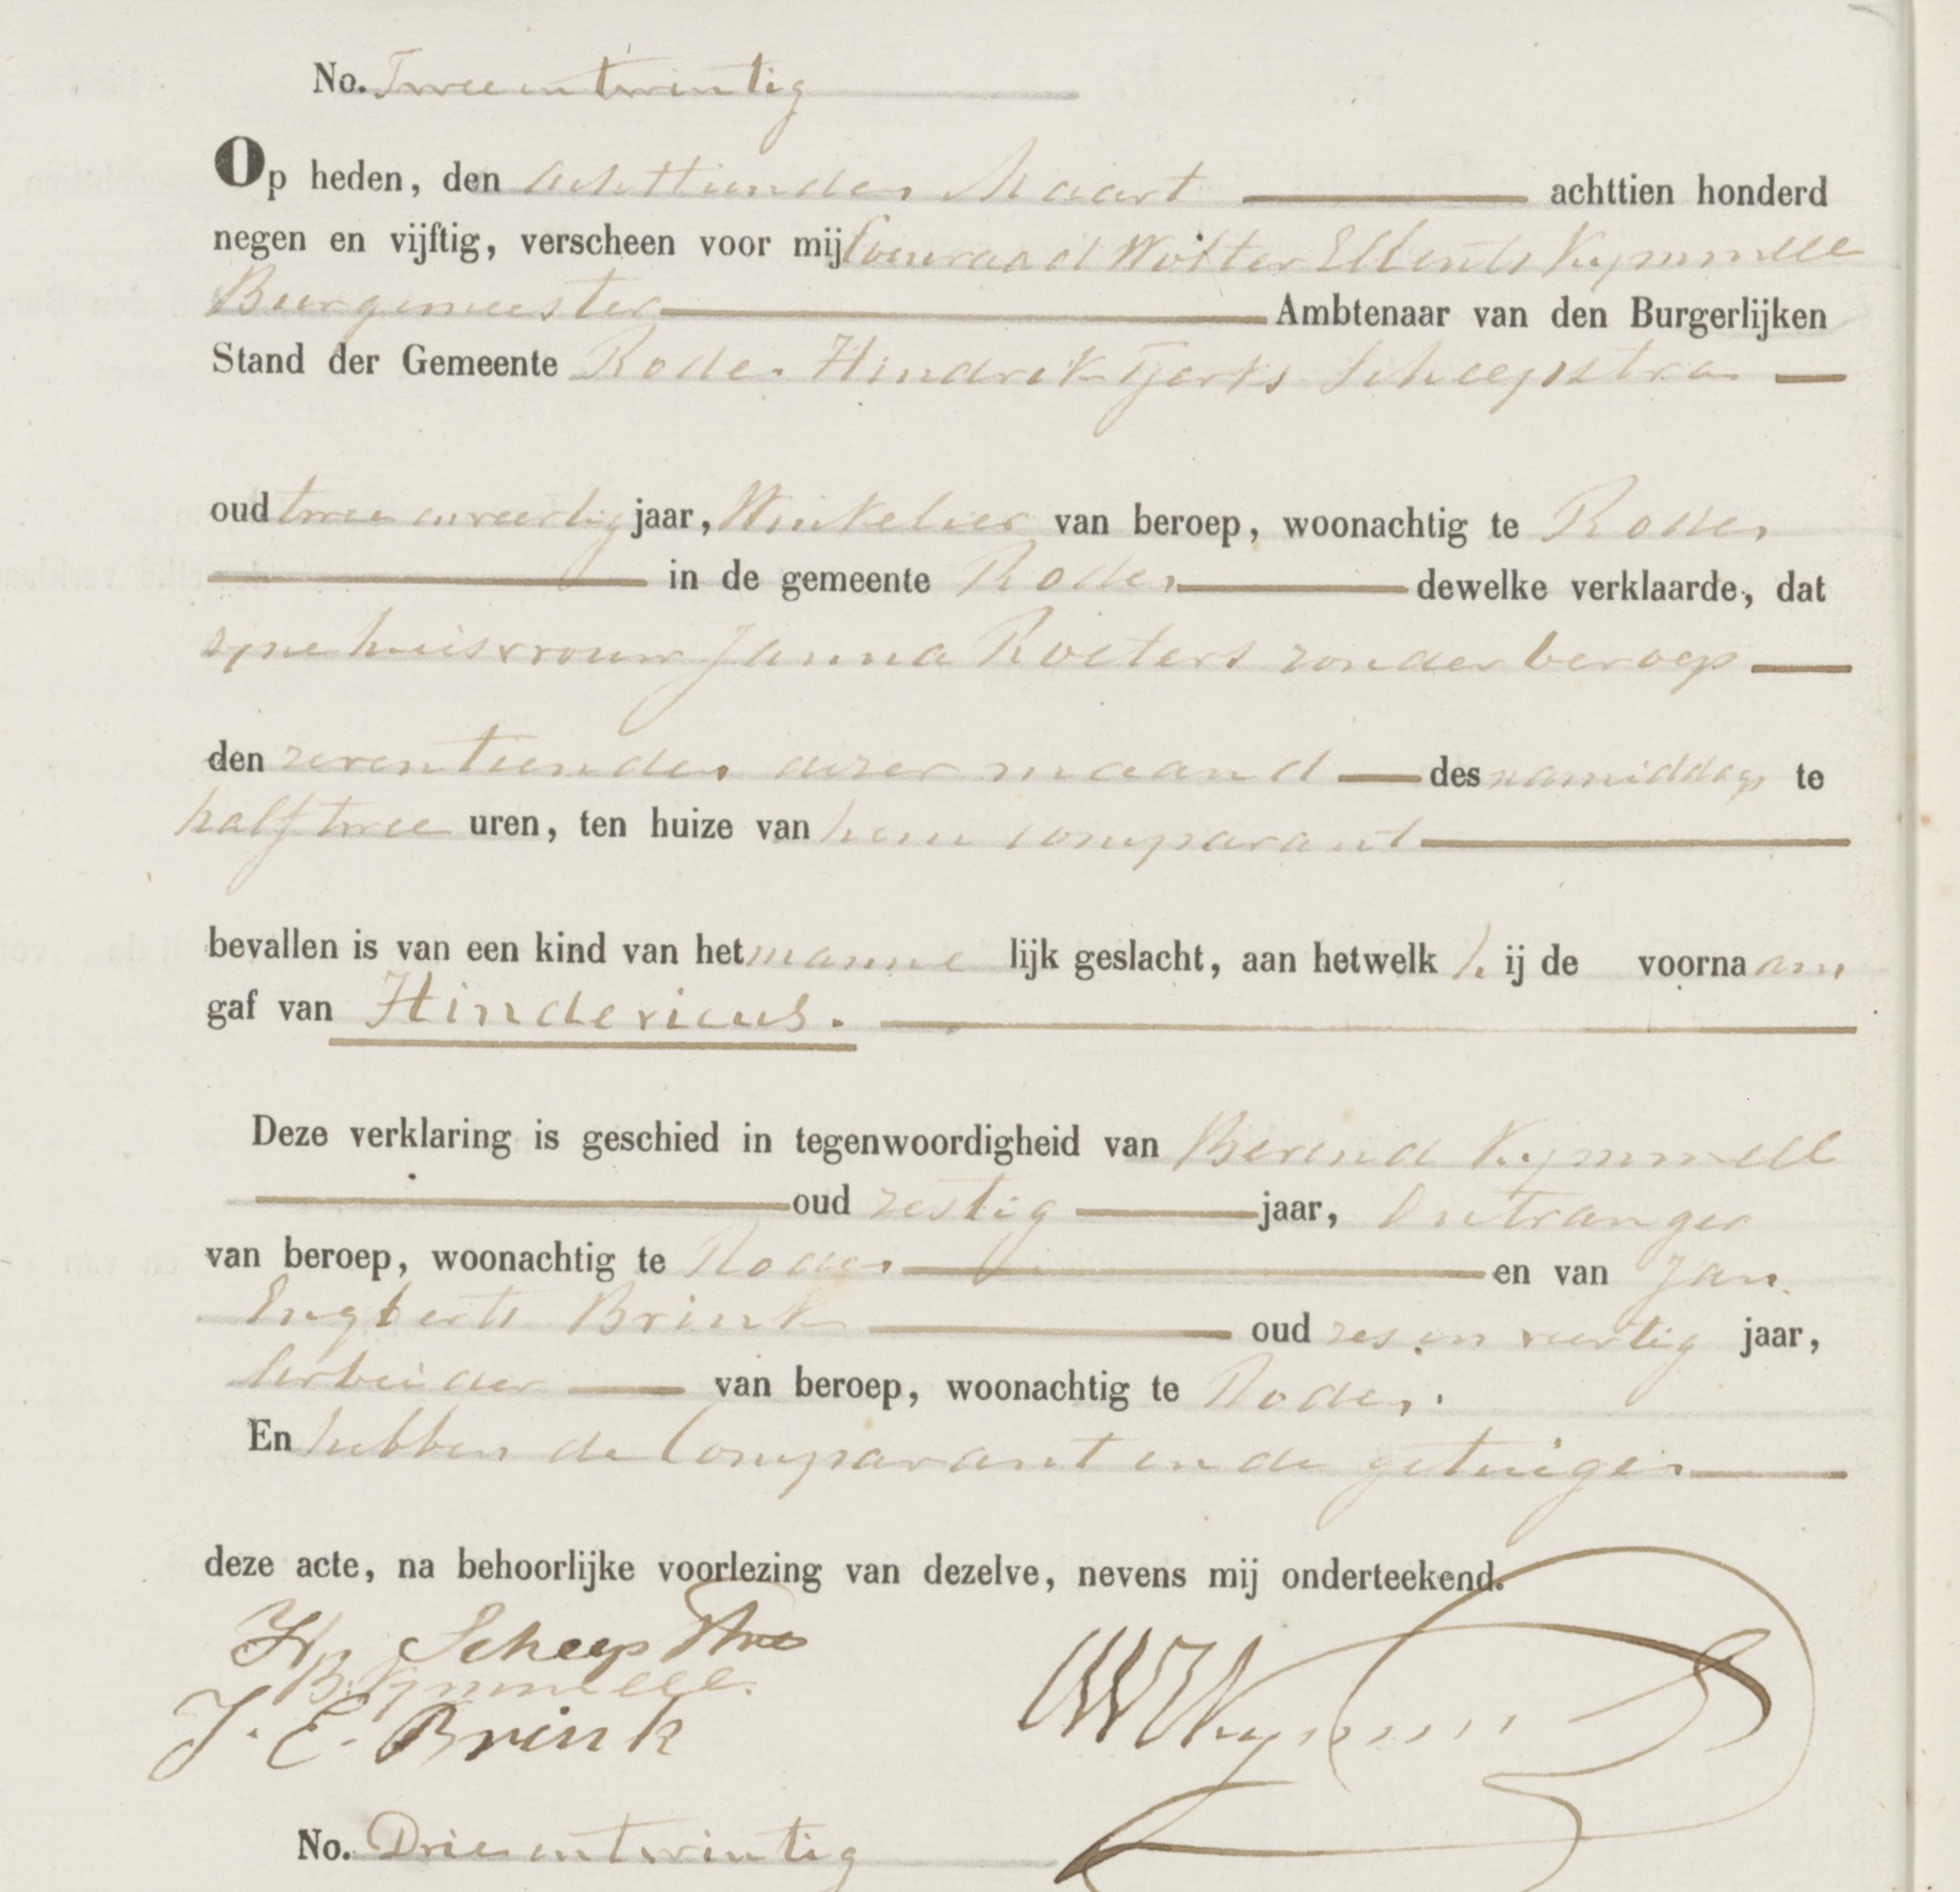 No. Twee en twintig
Op heden, den achttienden Maart achttien honderd
negen en vijftig, verscheen voor mij Coenraad Wolter Ellents Kymmell
Burgemeester Ambtenaar van den Burgerlijken
Stand der Gemeente Roden Hindrik Tjerks Scheepstra
oud twee en veertig jaar, Winkelier van beroep, woonachtig te Roden
in de gemeente Roden dewelke verklaarde, dat
zyne huisvrouw Janna Roeters zonder beroep
den zeventienden dezer maand des namiddags te
half twee uren, ten huize van hem comparant
bevallen is van een kind van het manne lijk geslacht, aan hetwelk h ij de voorna am
gaf van Hindericus.
Deze verklaring is geschied in tegenwoordigheid van Berend Kymmell
oud zestig jaar, Ontvanger
van beroep, woonachtig te Roden en van Jan
Engberts Brink oud zes en veertig jaar,
Arbeider van beroep, woonachtig te Roden.
En hebben de Comparant en de getuigen
deze acte, na behoorlijke voorlezing van dezelve, nevens mij onderteekend.
H. Scheepstra
B. Kymmell.
J. E. Brink
CWEKymmell
No. Drie en twintig